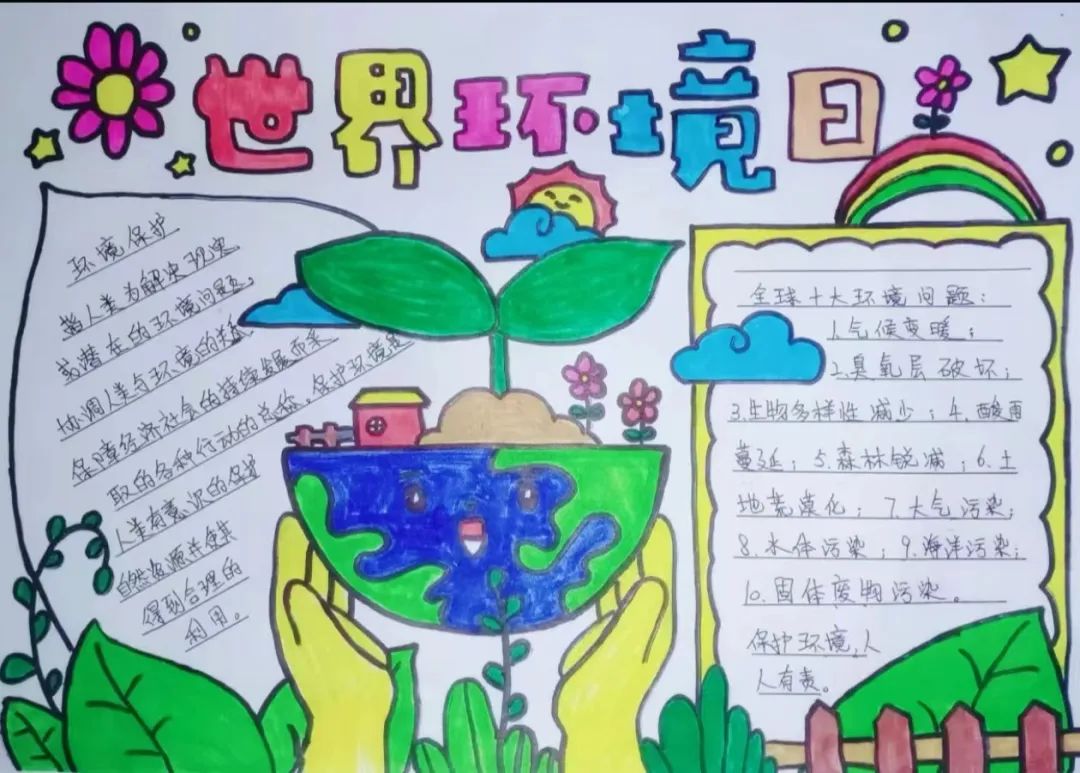 世界环境日
环境保护
指人类为解决现实
或潜在的环境问题,
协调人类与环境的关系
保障经济社会的持续发展而采
取的各种行动的总称,保护环境是
人类有意识的保护
自然资源并使其
得到合理的
利用。
全球十大环境问题:
1.气候变暖;
2.臭氧层破坏;
3.生物多样性减少;4.酸雨
蔓延;5.森林锐减;6.土
地荒漠化;7.大气污染;
8.水体污染;9.海洋污染;
10.固体废物污染。
保护环境,人
人有责。